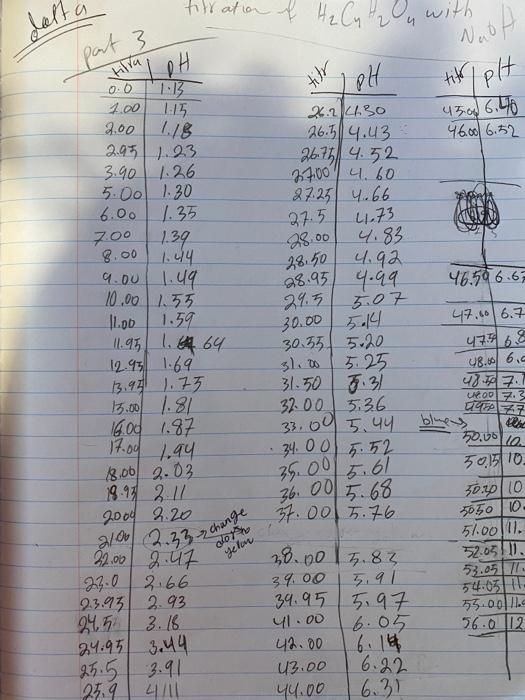 data
titration of H2C4H2O4 with
NaOH
part 3
titra | pH
0.0 1.13
1.00 1.15
2.00 1.18
2.95 1.23
3.90 1.26
5.00 1.30
6.00 1.35
7.00 1.39
8.00 1.44
9.00 1.49
10.00 1.55
11.00 1.59
11.95 1.64
12.95 1.69
13.95 1.75
15.00 1.81
16.00 1.87
17.00 1.94
18.00 2.03
18.95 2.11
20.00 2.20
21.00 2.33 → change
22.00 2.47
23.0 2.66
23.95 2.93
24.5 3.18
24.95 3.44
25.5 3.91
25.9 4.11
titr | pH
26.2 4.30
26.5 4.43
26.75 4.52
27.00 4.60
27.25 4.66
27.5 4.73
28.00 4.83
28.50 4.92
28.95 4.99
29.5 5.07
30.00 5.14
30.55 5.20
31.00 5.25
31.50 5.31
32.00 5.36
33.00 5.44
34.00 5.52
35.00 5.61
36.00 5.68
37.00 5.76
38.00 5.83
39.00 5.91
39.95 5.97
41.00 6.05
42.00 6.14
43.00 6.22
44.00 6.31
titr | pH
45.00 6.40
46.00 6.52
46.50 6.6
47.00 6.7
47.5 6.8
48.00
48.50 7.1
7.3
49.50 7.7
blue →
50.00 10
50.15 10.
50.20 10
50.50 10.
51.00 11.
52.05 11.
53.05 11.
54.05 11.
55.00 11.
56.0 12